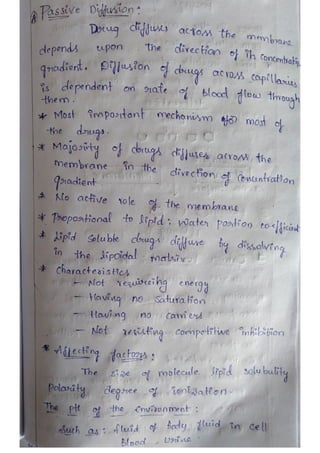 Passive Diffusion :
Drug diffuses across the membrane
depends upon the direction of its concentration
gradient. Diffusion of drugs across capillaries
is dependent on rate of blood flow through
them.
* Most important mechanism for most of
the drugs.
* Majority of drugs diffuses across the
membrane in the direction of concentration
gradient
* No active role of the membrane
* Proportional to lipid : water partion co-efficient
* Lipid soluble drugs diffuse by dissolving
in the lipoidal matrix.
* Characteristics
- Not requireing energy
- Having no saturation
- Having no carriers
- Not resisting competitive inhibition
* Affecting factors :
The size of molecule lipid solubility
Polarity degree of ionisation.
The pH of the environment :
Such as : fluid of body fluid in cell
blood, urine